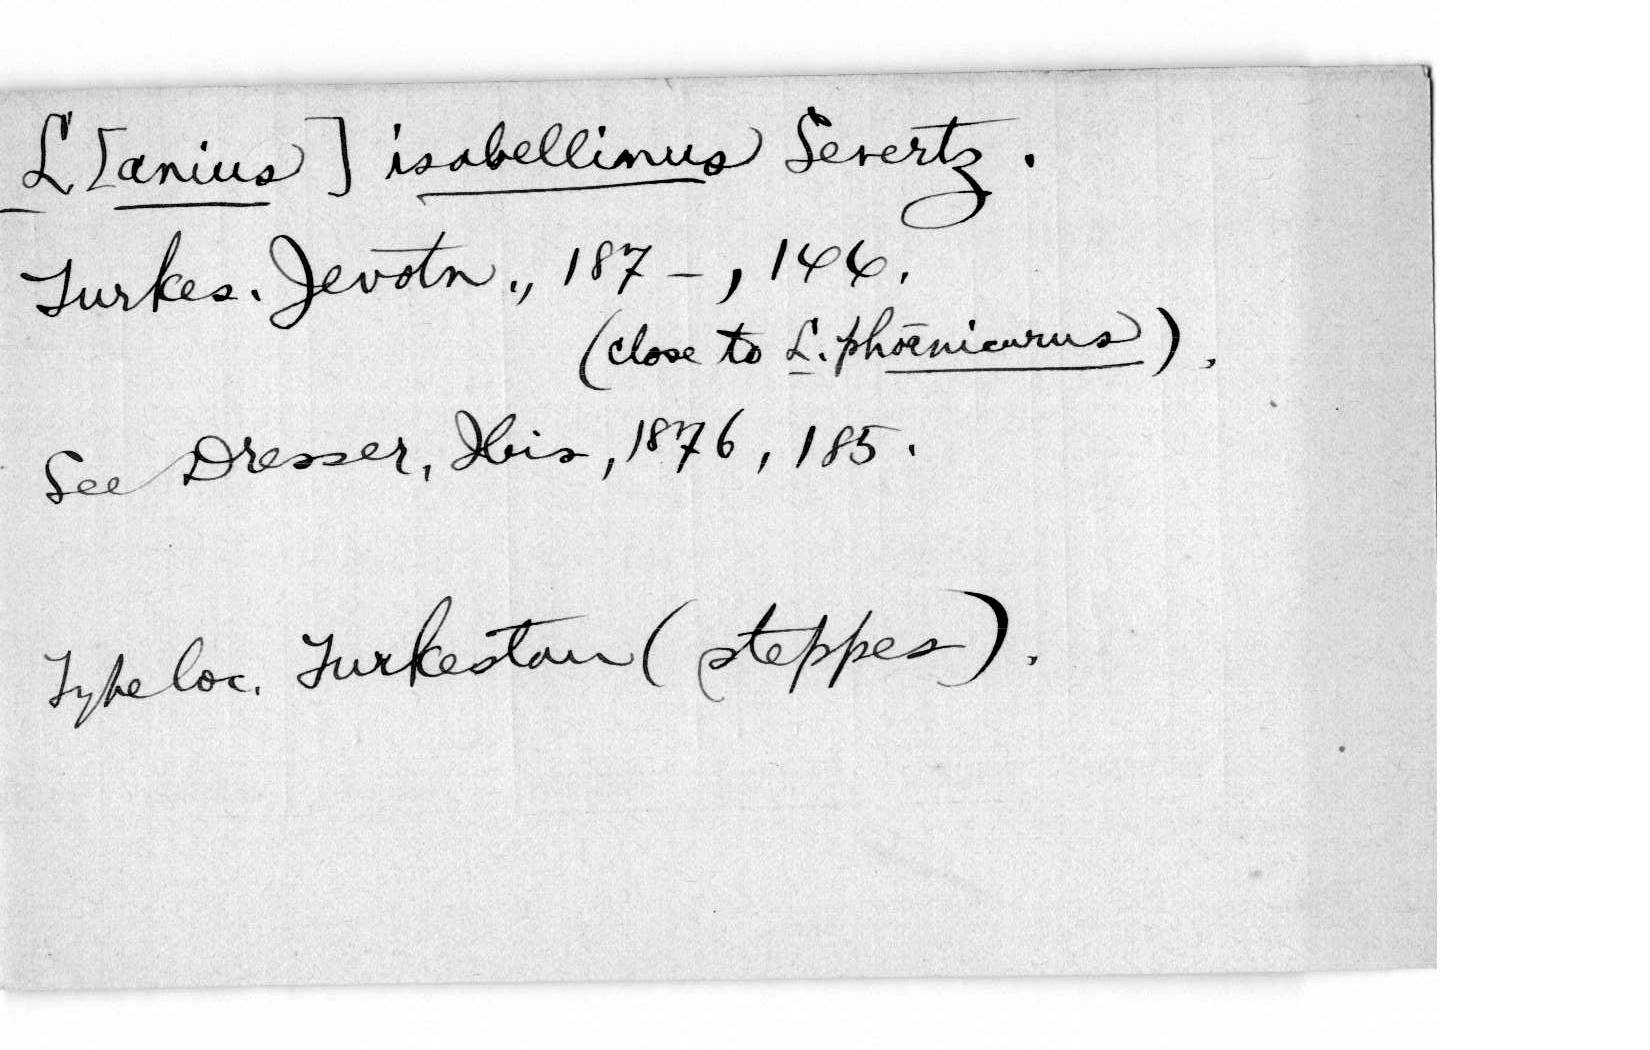 L[anius] isabellinus Severtz.
Turkes. Jevotn., 187-, 144.
(close to L. phœnicurus).
See Dresser, Ibis, 1876, 185.
Type loc. Turkestan (steppes).